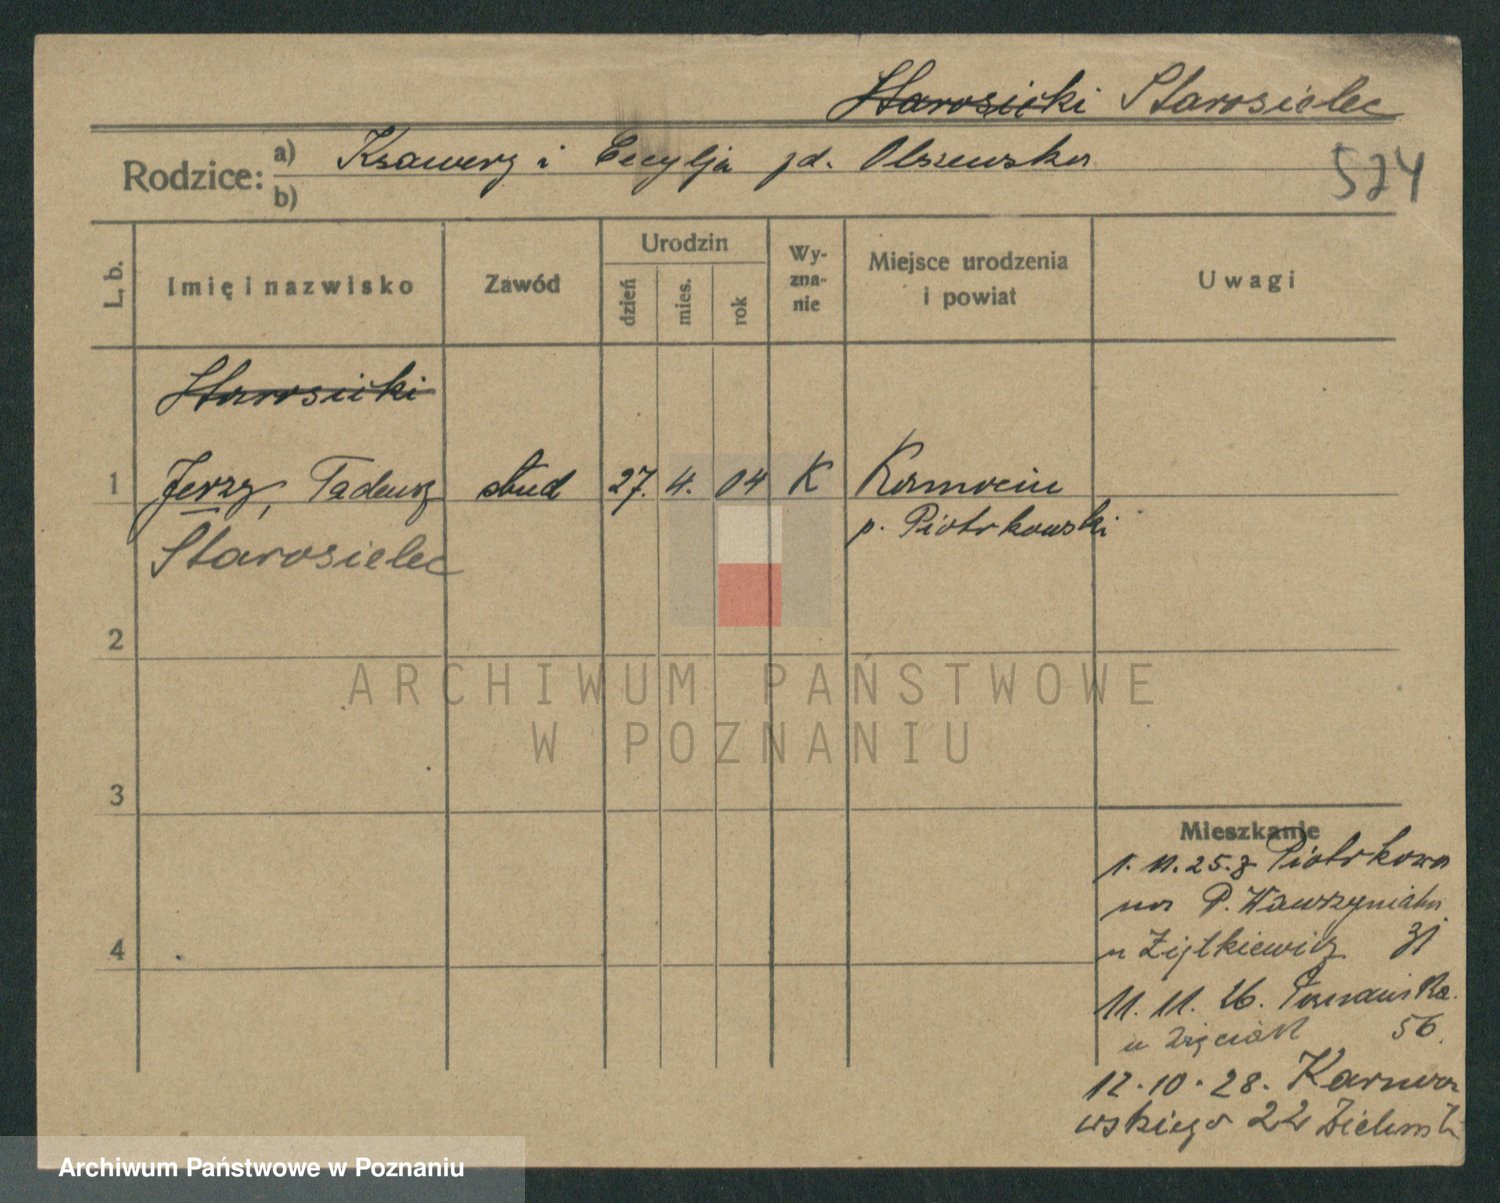 Starosicki Starosielec
Rodzice: a) Ksawery i Cecylja zd. Olszewska
b)
524
L. b.
Imię i nazwisko
Zawód
Urodzin
dzień
mies.
rok
Wy-
zna-
nie
Miejsce urodzenia
i powiat
Uwagi
Starosicki
1 Jerzy, Tadeusz stud 27. 4. 04 K Kamocin
p. Piotrkowski
Starosielec
2
3
4
Mieszkanie
1. 11. 25. z Piotrkowa
na P. Wawrzyniaka
u Ziętkiewicz 31
11. 11. 26. Poznańska
u 56.
12. 10. 28. Karwo
wskiego 22
ARCHIWUM PAŃSTWOWE
W POZNANIU
Archiwum Państwowe w Poznaniu